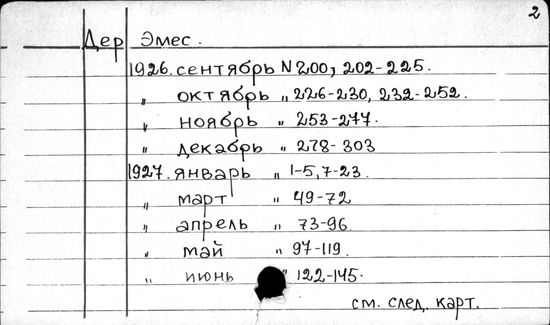 2
Дер Эмес.
1926. сентябрь N 200, 202-225.
„ октябрь „ 226-230, 232-252.
„ ноябрь „ 253-277.
„ декабрь „ 278-303
1927. январь „ 1-5, 7-23.
„ март „ 49-72
„ апрель „ 73-96.
„ май „ 97-119.
„ июнь „ 122-145.
см. след. карт.